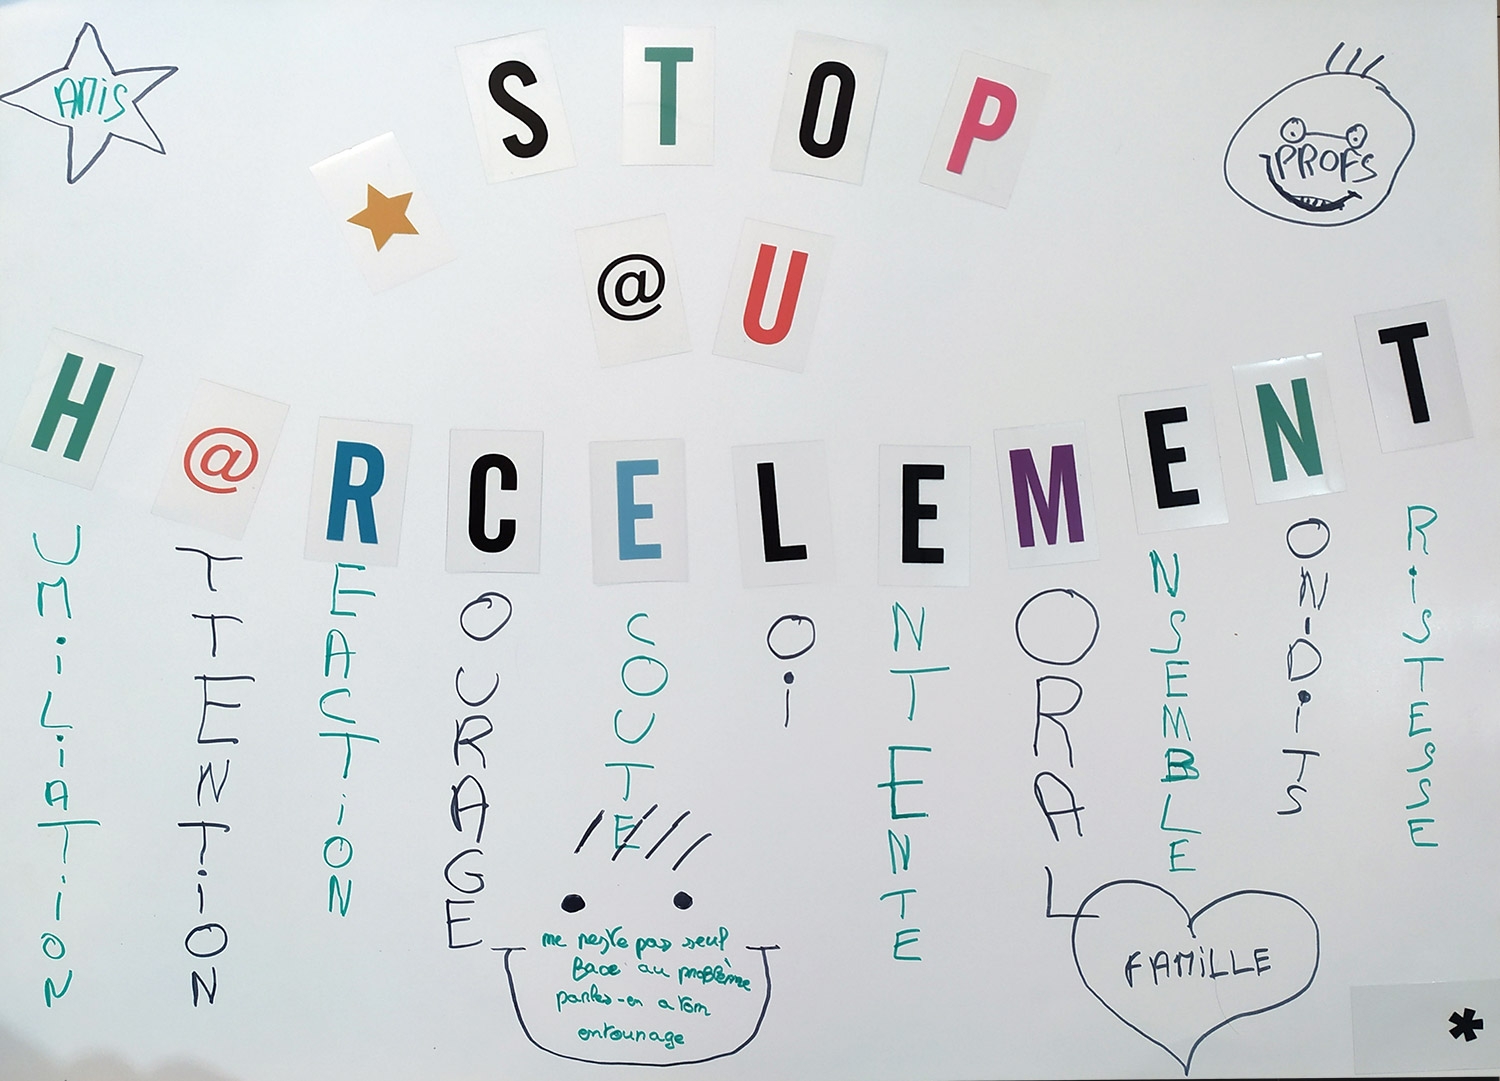 AMIS
STOP
PROFS
@U
H@RCELEMENT
UMiLiATiON
TTENTiON
EACTiON
OURAGE
COUTE
Oi
NTENTE
ORAL
NSEMBLE
ONDiTS
RiSTESSE
me reste pas seul
face au problème
parles-en a ton
entourage
FAMiLLE
*